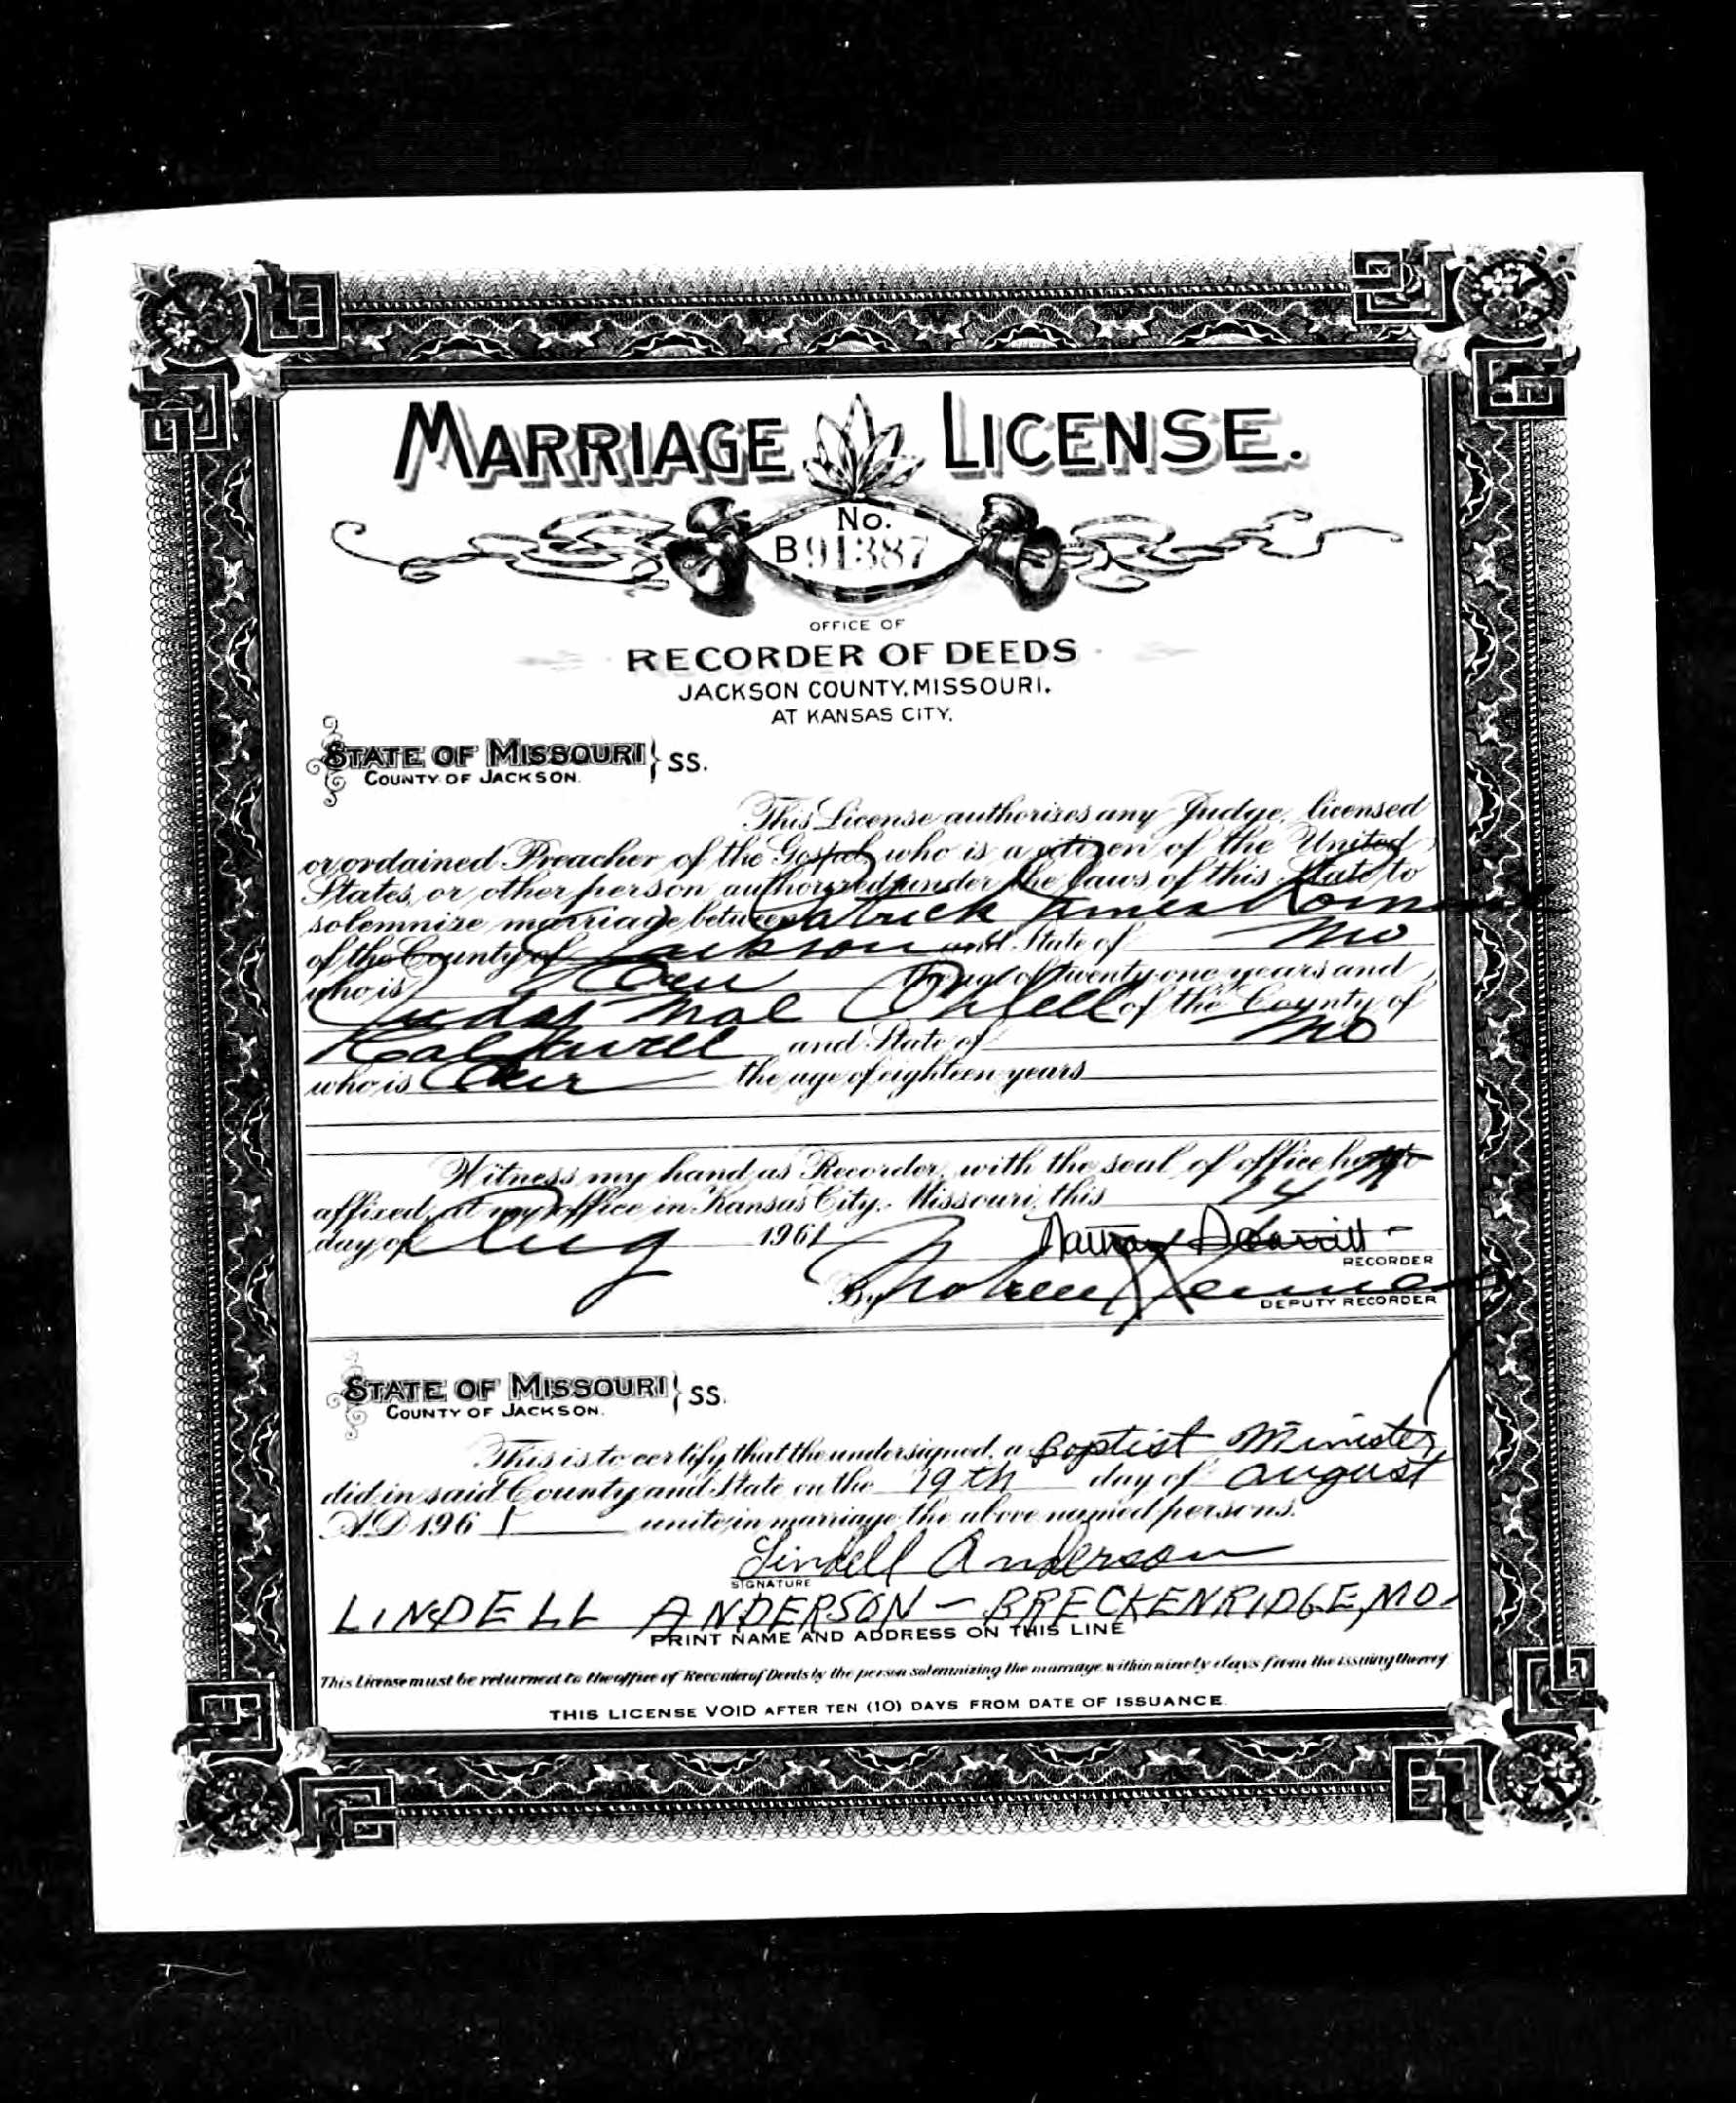 MARRIAGE LICENSE.
No.
B91387
OFFICE OF
RECORDER OF DEEDS
JACKSON COUNTY, MISSOURI.
AT KANSAS CITY.
STATE OF MISSOURI } SS.
COUNTY OF JACKSON.
This License authorizes any Judge, licensed
or ordained Preacher of the Gospel, who is a citizen of the United
States, or other person authorized under the laws of this State, to
solemnize marriage between Patrick James
of the County of Jackson and State of Mo
who is Over the age of twenty-one years and
Mae of the County of
Caldwell and State of Mo
who is Over the age of eighteen years
Witness my hand as Recorder, with the seal of office hereto
affixed, at my office in Kansas City, Missouri, this 14
day of Aug 1961
RECORDER
By
DEPUTY RECORDER
STATE OF MISSOURI } SS.
COUNTY OF JACKSON.
This is to certify that the undersigned, a Baptist Minister,
did in said County and State on the 19th day of August
A.D. 1961 unite in marriage the above named persons.
Lindell Anderson
SIGNATURE
LINDELL ANDERSON - BRECKENRIDGE, MO.
PRINT NAME AND ADDRESS ON THIS LINE
This License must be returned to the office of Recorder of Deeds by the person solemnizing the marriage within ninety days from the issuing thereof
THIS LICENSE VOID AFTER TEN (10) DAYS FROM DATE OF ISSUANCE.